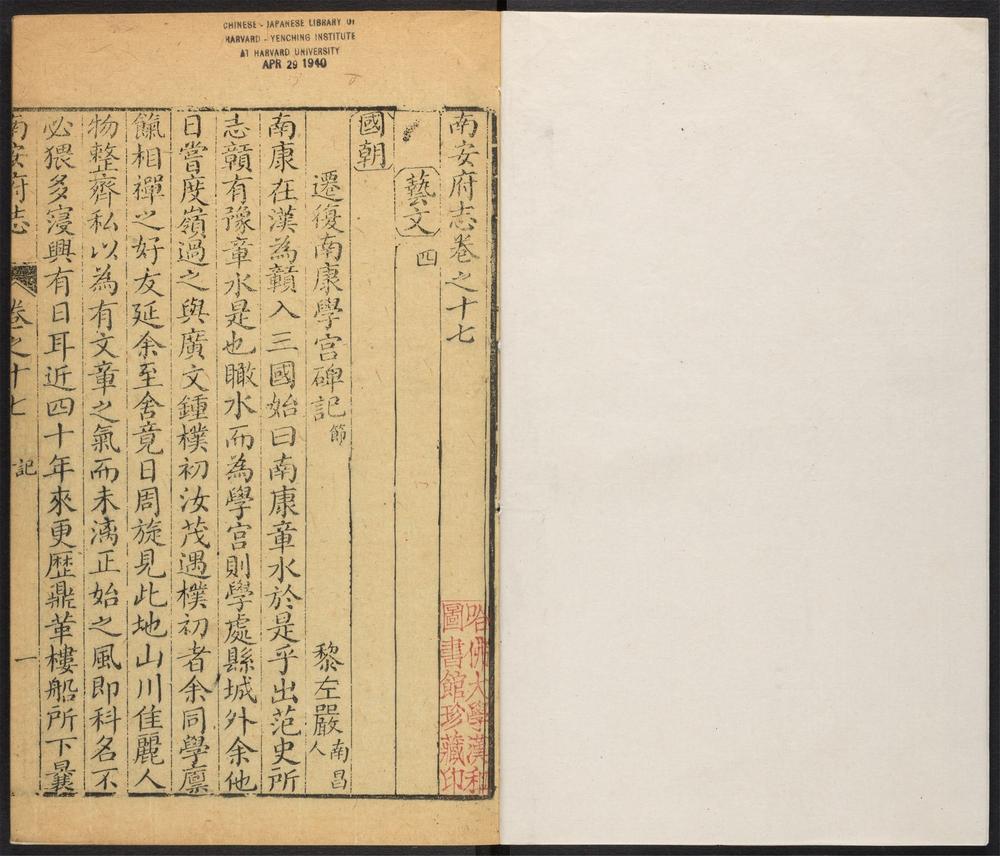 CHINESE - JAPANESE LIBRARY OF
HARVARD - YENCHING INSTITUTE
AT HARVARD UNIVERSITY
APR 29 1940
南安府志卷之十七
藝文四
國朝
遷復南康學宮碑記節
黎左嚴南昌人
南康在漢為贛入三國始曰南康章水於是乎出范史所
志贛有豫章水是也瞰水而為學宮則學處縣城外余他
日嘗度嶺過之與廣文鍾樸初汝茂遇樸初者余同學廪
餼相禪之好友延余至舍竟日周旋見此地山川佳麗人
物整齊私以為有文章之氣而未漓正始之風即科名不
必猥多寖興有日耳近四十年來更歷鼎革樓船所下曩
南安府志 卷之十七 記 一
哈佛大學漢和
圖書館珍藏印